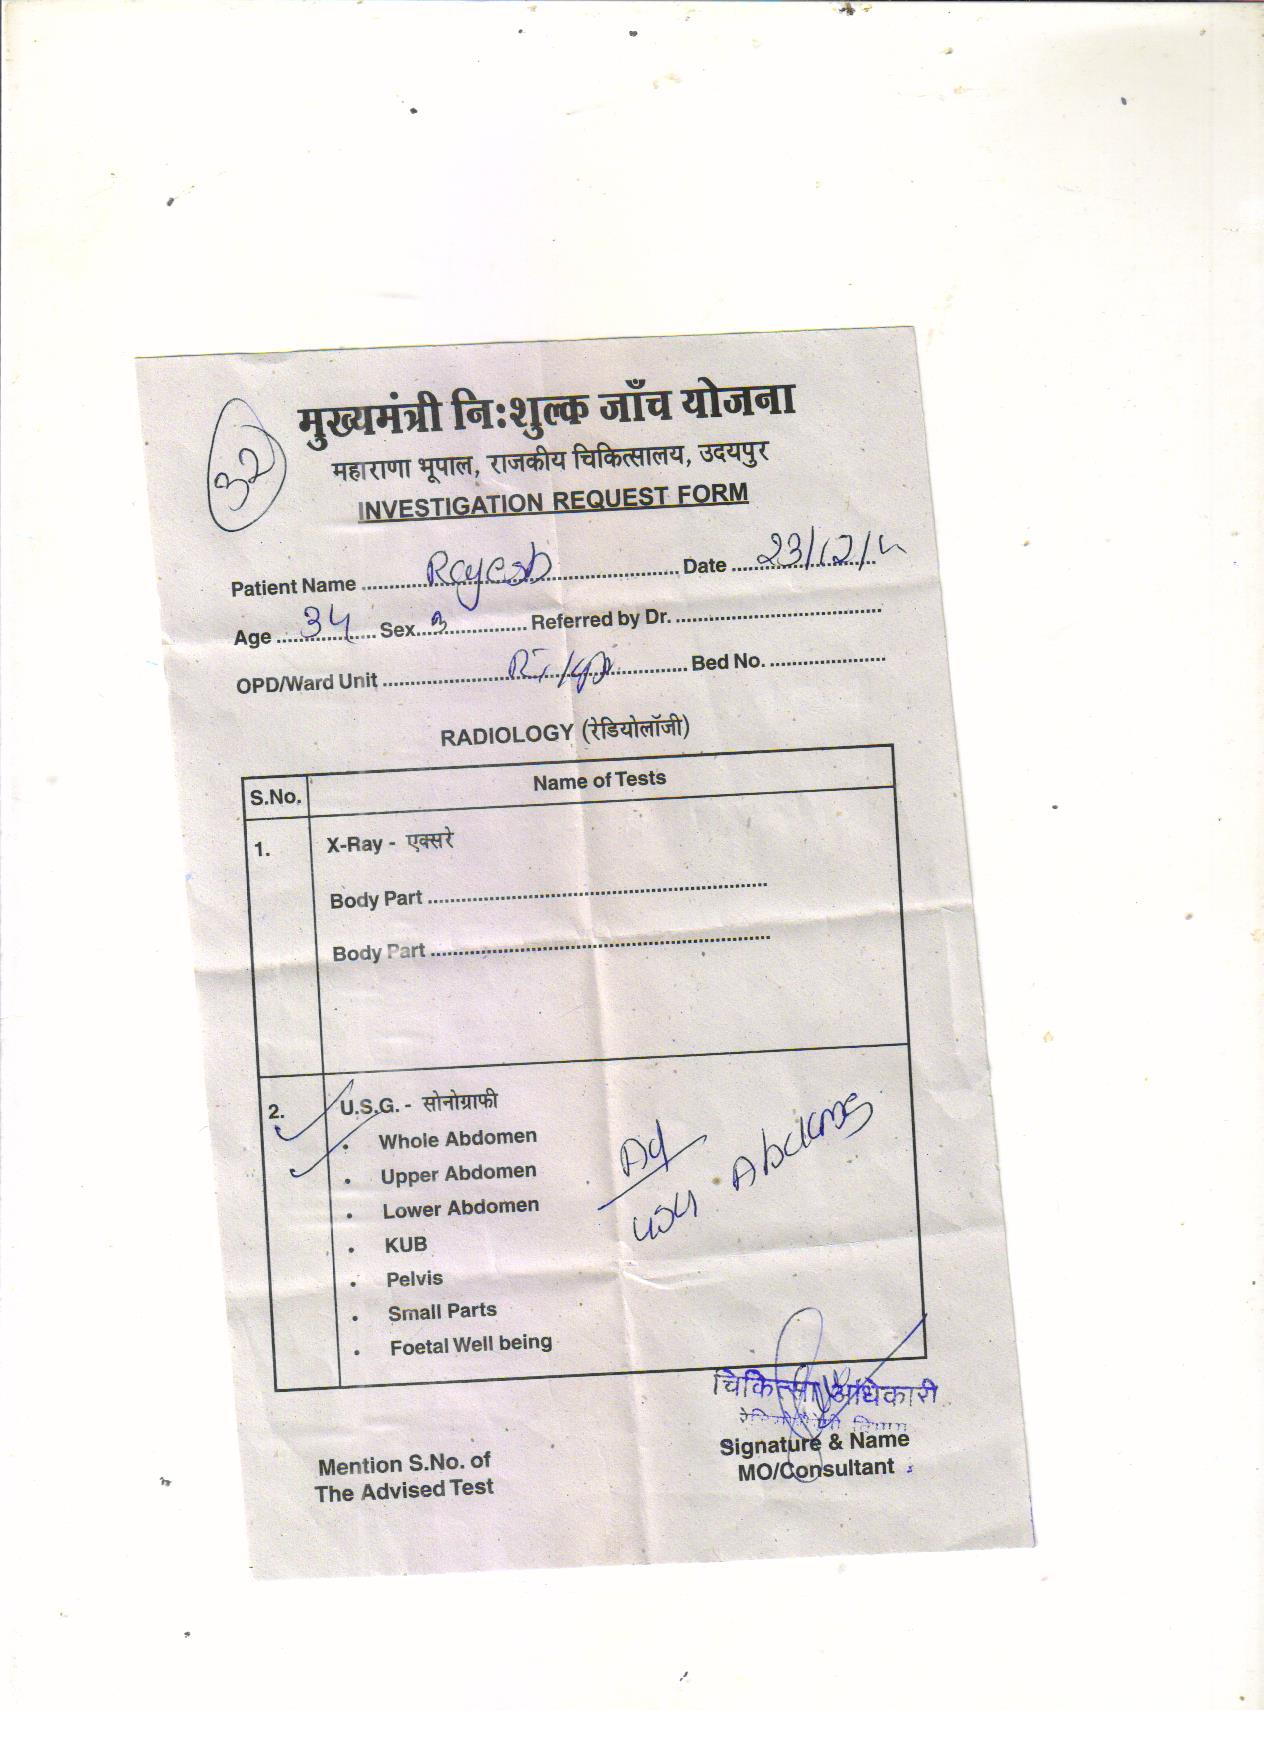 32
मुख्यमंत्री नि:शुल्क जाँच योजना
महाराणा भूपाल, राजकीय चिकित्सालय, उदयपुर
INVESTIGATION REQUEST FORM
Patient Name .......... Rajesh .......... Date .......... 23/12/
Age .......... 34 .......... Sex .......... Referred by Dr. ..........
OPD/Ward Unit .......... Bed No. ..........
RADIOLOGY (रेडियोलॉजी)
S.No. Name of Tests
1. X-Ray - एक्सरे
Body Part ..........
Body Part ..........
2. U.S.G. - सोनोग्राफी
• Whole Abdomen
• Upper Abdomen
Adv
• Lower Abdomen
USG Abdomen
• KUB
• Pelvis
• Small Parts
• Foetal Well being
चिकित्सा अधिकारी
Signature & Name
MO/Consultant
Mention S.No. of
The Advised Test